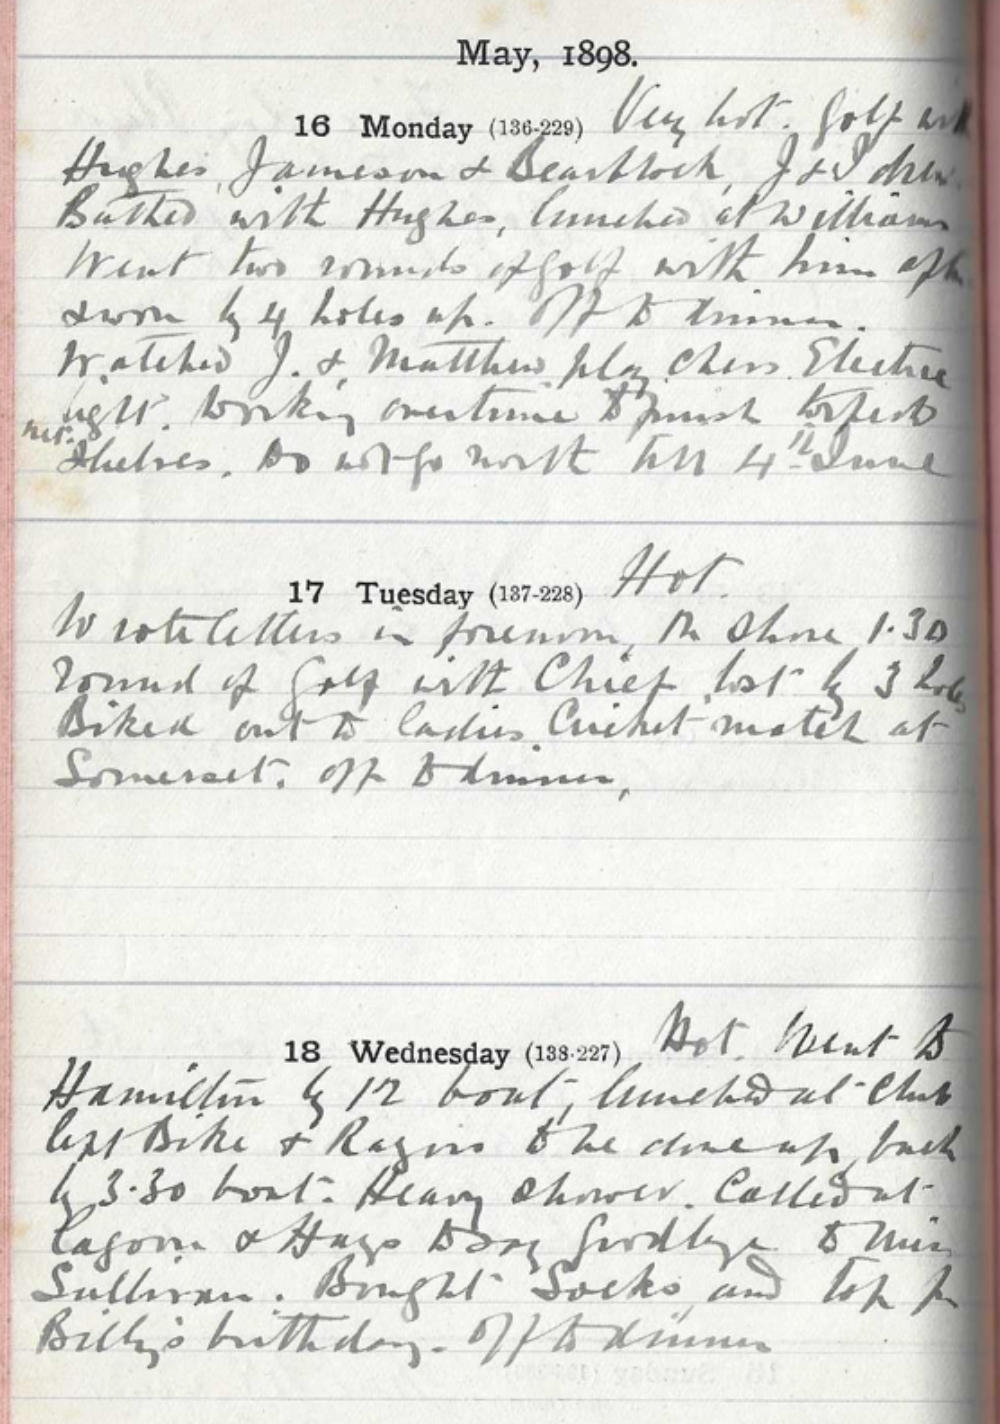 May, 1898.
16 Monday (136-229) Very hot. Golf with
Hughes, Jameson & Bearblock, J & I drew.
Bathed with Hughes, lunched at Williams
Went two rounds of golf with him after
& won by 4 holes up. Off to dinner.
Watched J. & Matthew play chess. Electric
light. Working overtime to finish torpedo
net shelves. Do not go north till 4th June
17 Tuesday (137-228) Hot.
Wrote letters in forenoon, On shore 1.30
round of Golf with Chief lost by 3 holes
Biked out to ladies Cricket match at
Somerset. off to dinner,
18 Wednesday (138-227) Hot. Went to
Hamilton by 12 boat, lunched at Club
left Bike & Razors to be done up, back
by 3.30 boat. Heavy shower. Called at
Lagoon & Hays to say Goodbye to Miss
Sullivan. Bought Socks and top for
Billy's birthday. Off to dinner